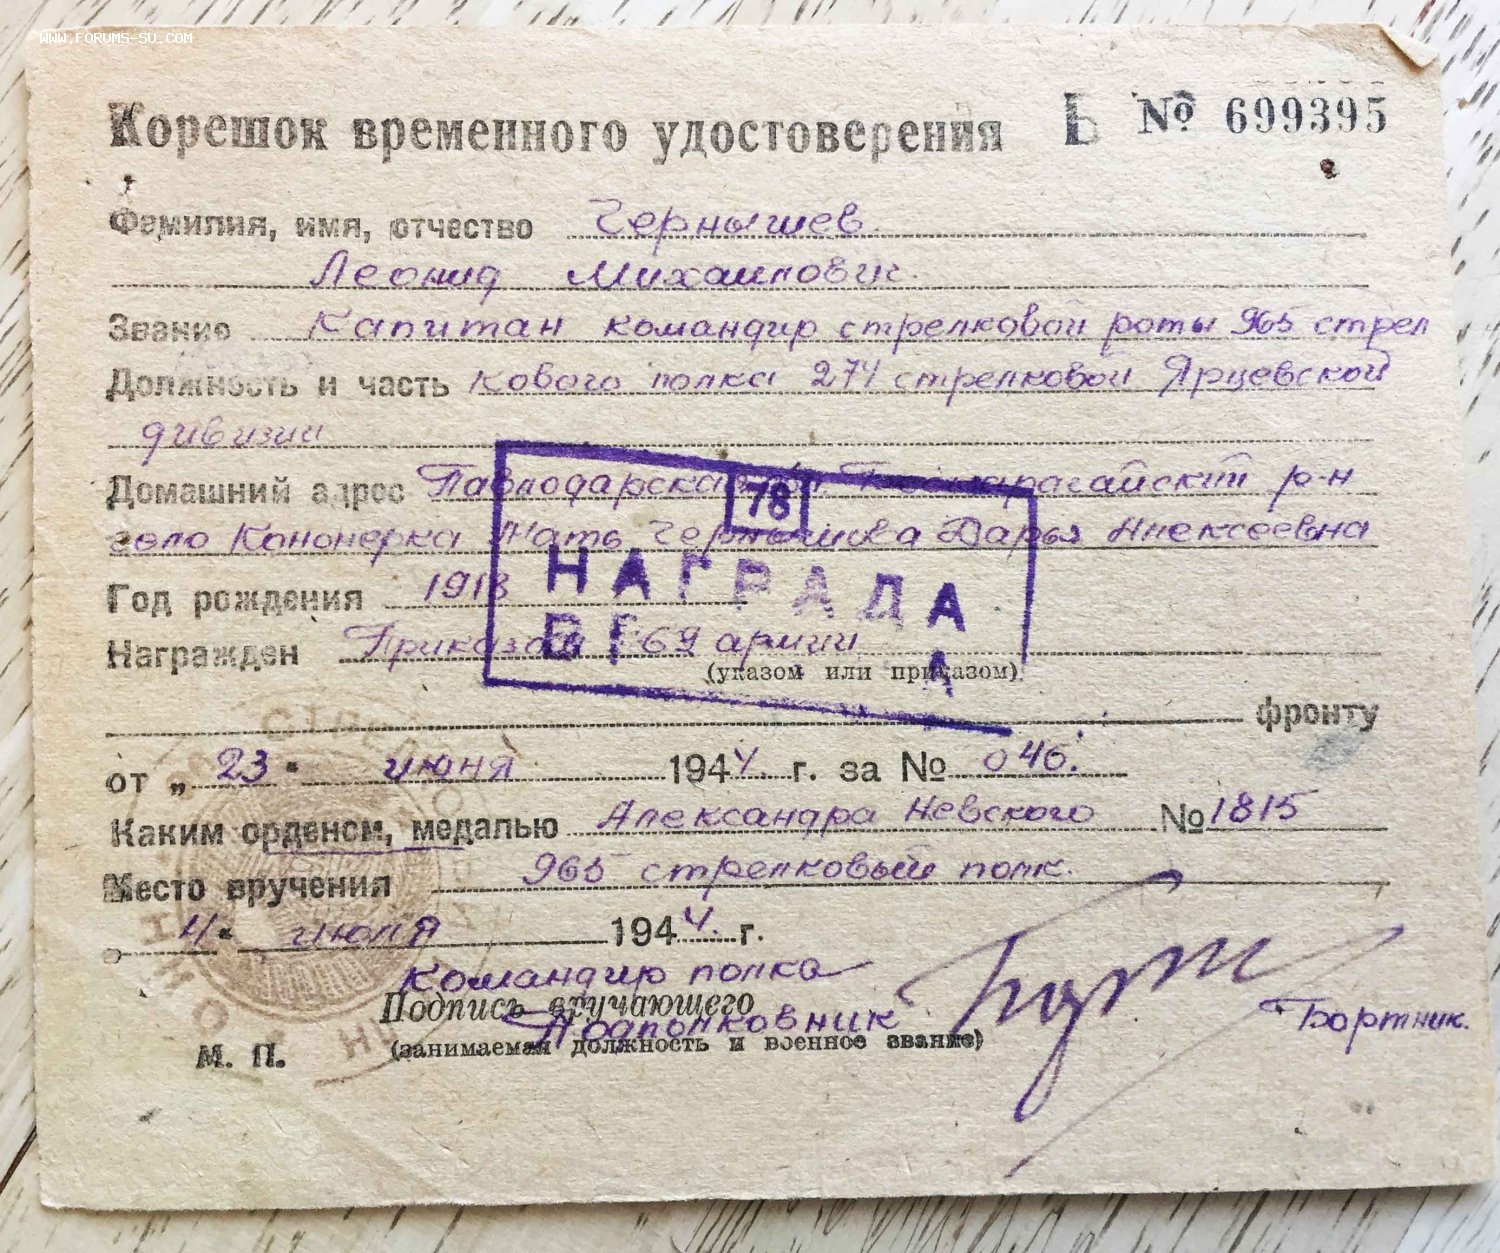 WWW.FORUMS-SU.COM
Корешок временного удостоверения Б № 699395
Фамилия, имя, отчество Чернышев
Леонид Михаилович
Звание Капитан командир стрелковой роты 965 стрел
Должность и часть кового полка 274 стрелковой Ярцевской
дивизии
Домашний адрес Павлодарская р-н
село Кононерка Мать Чернышева Дарья Алексеевна
78
НАГРАДА
Год рождения 1918
Награжден Приказом 69 армии
(указом или приказом)
фронту
от „23" июня 1944 г. за № 046.
Каким орденом, медалью Александра Невского №1815
Место вручения 965 стрелковый полк.
4" июля 1944 г.
Командир полка
Подпись вручающего
Подполковник Бортник.
(занимаемая должность и военное звание)
М. П.